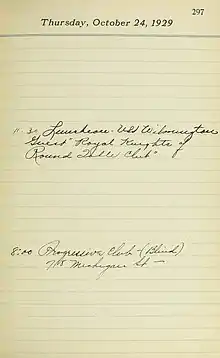 297
Thursday, October 24, 1929
11.30 Luncheon - Hotel Wilmington
Guest "Royal Knights of
Round Table Club"
8:00 Progressive Club - (Blind)
Michigan St -